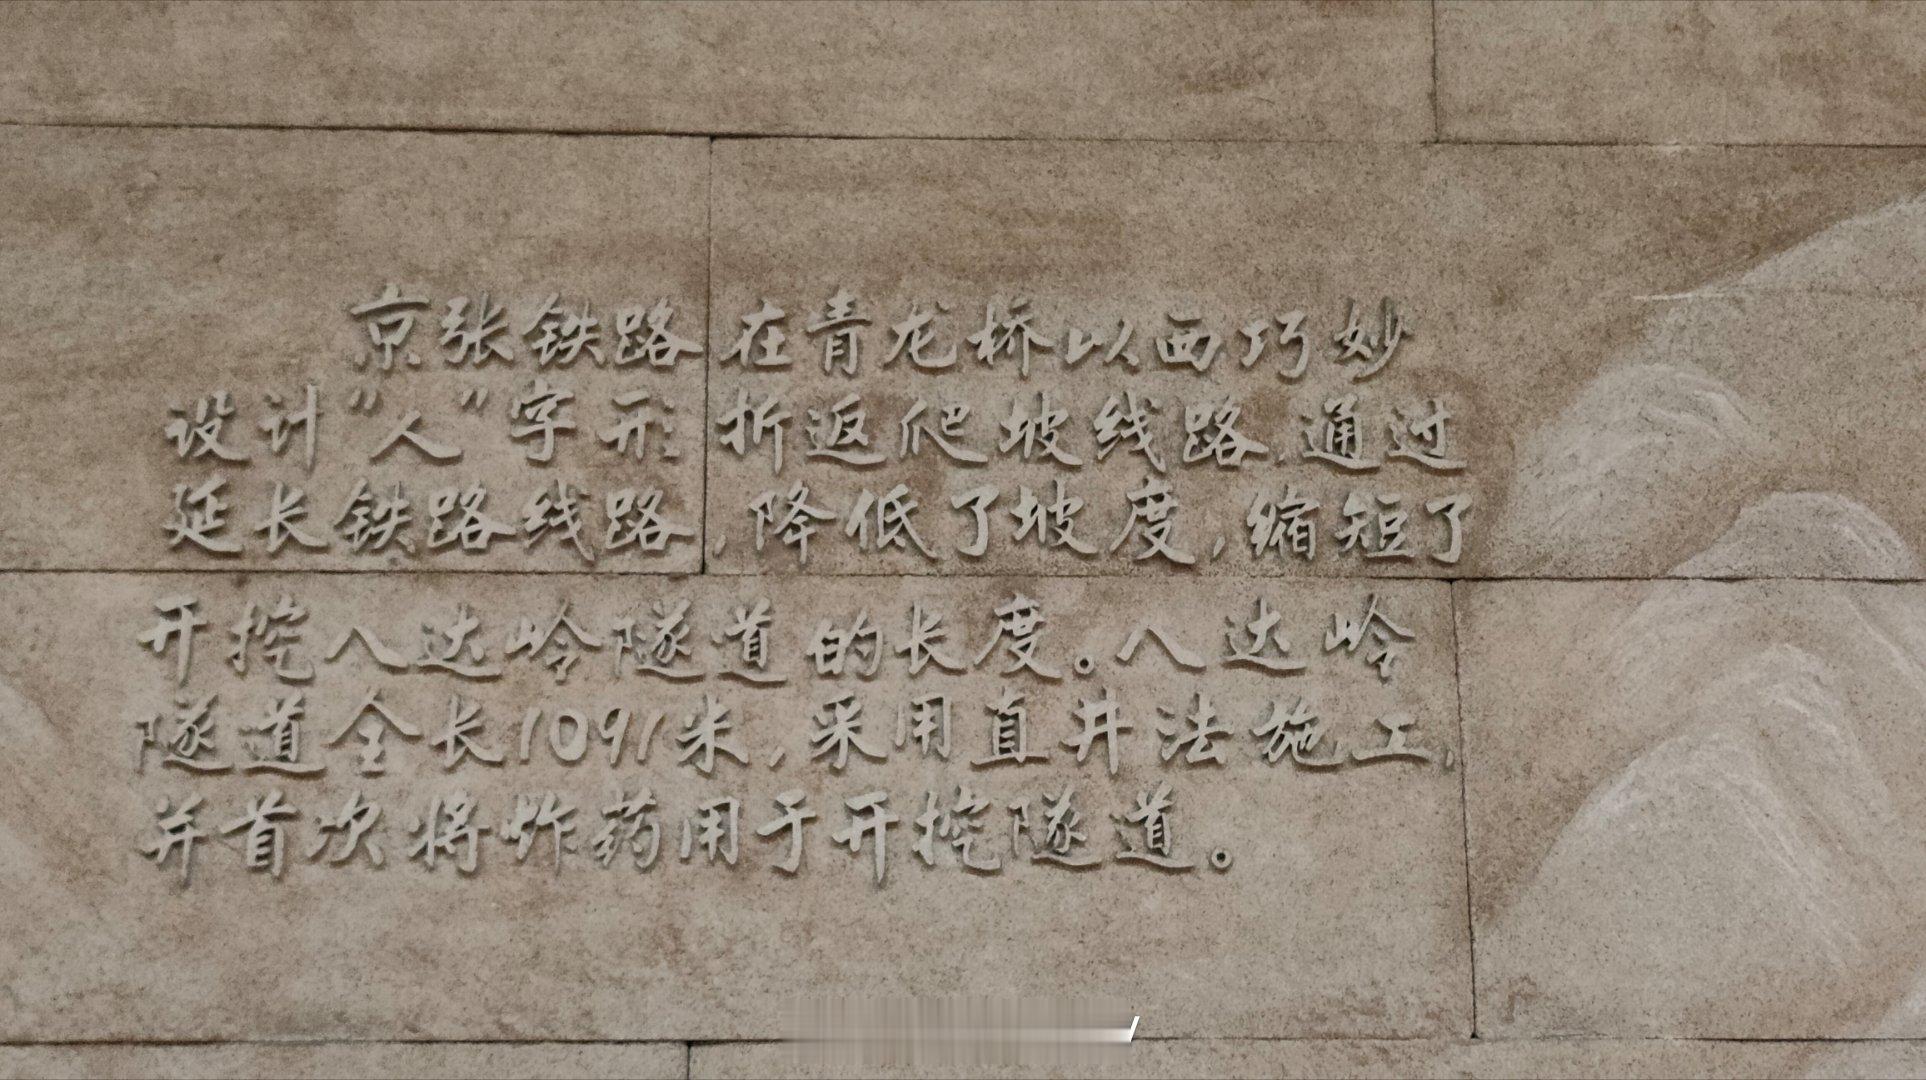 京张铁路在青龙桥以西巧妙
设计"人"字形折返爬坡线路,通过
延长铁路线路,降低了坡度,缩短了
开挖八达岭隧道的长度。八达岭
隧道全长1091米,采用直井法施工,
并首次将炸药用于开挖隧道。